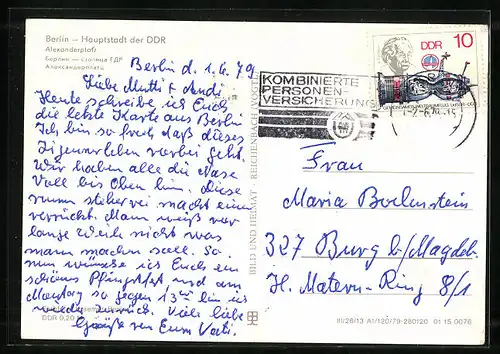 Berlin – Hauptstadt der DDR
Alexanderplatz
Берлин — столица ГДР
Александерплатц
Berlin d. 1.6.79
Liebe Mutti + Andi
Heute schreibe ich Euch
die letzte Karte aus Berlin
Ich bin so froh daß dieses
Zigeunerleben vorbei geht.
Wir haben alle die Nase
Voll bis Oben hin. diese
rum macht einen
verrückt. Mann weiß vor
lange Weile nicht was
mann machen soll. So
nun wünsche ich Euch ein
schönes Pfingstfest und am
Montag so gegen 13 bin ich
wieder zurück. Viele liebe
Grüße von Eurem Vati.
DDR 0,20
BILD UND HEIMAT · REICHENBACH
KOMBINIERTE
PERSONEN-
VERSICHERUNG
DDR 10
Frau
Maria Bodenstein
327 Burg b/Magdeb.
H. Matern-Ring 8/1
III/26/13 A1/120/79-280120 01 15 0076